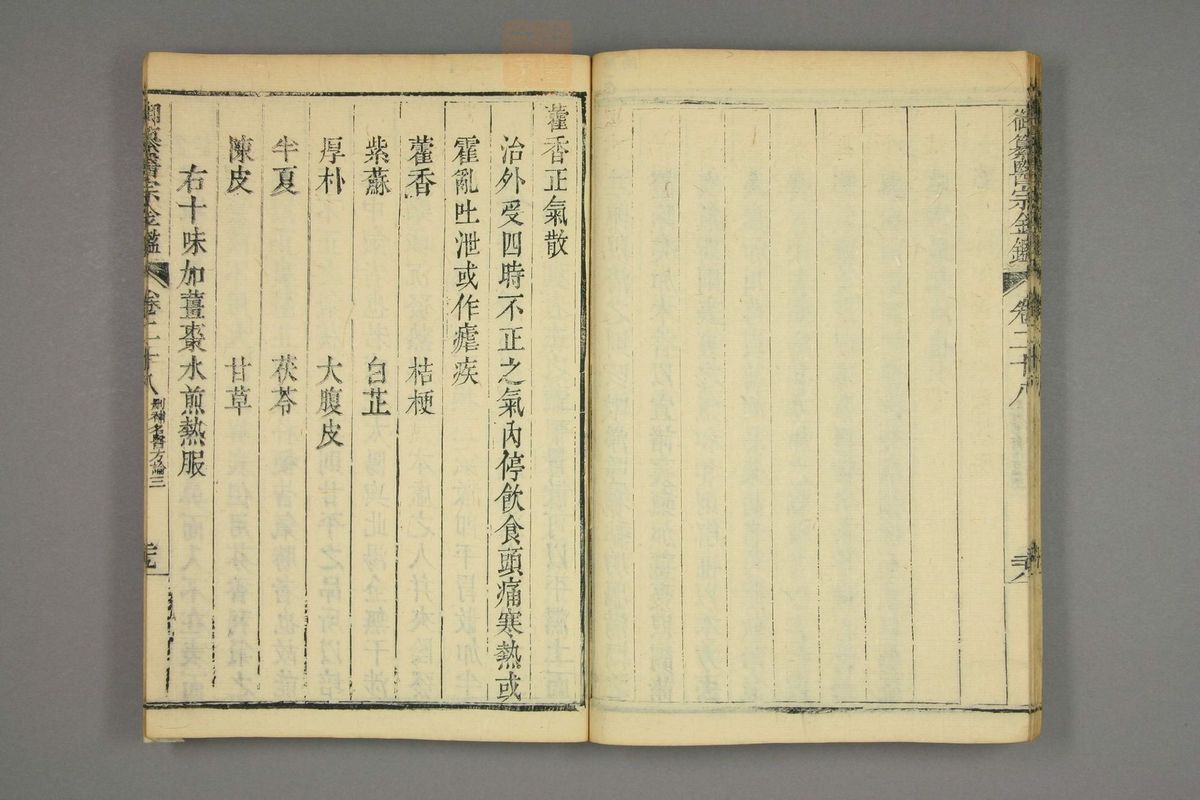 御纂醫宗金鑑 卷二十八
藿香正氣散
治外受四時不正之氣內停飲食頭痛寒熱或
霍亂吐泄或作瘧疾
藿香 桔梗
紫蘇 白芷
厚朴 大腹皮
半夏 茯苓
陳皮 甘草
右十味加薑棗水煎熱服
御纂醫宗金鑑 卷二十八 刪補名醫方論三